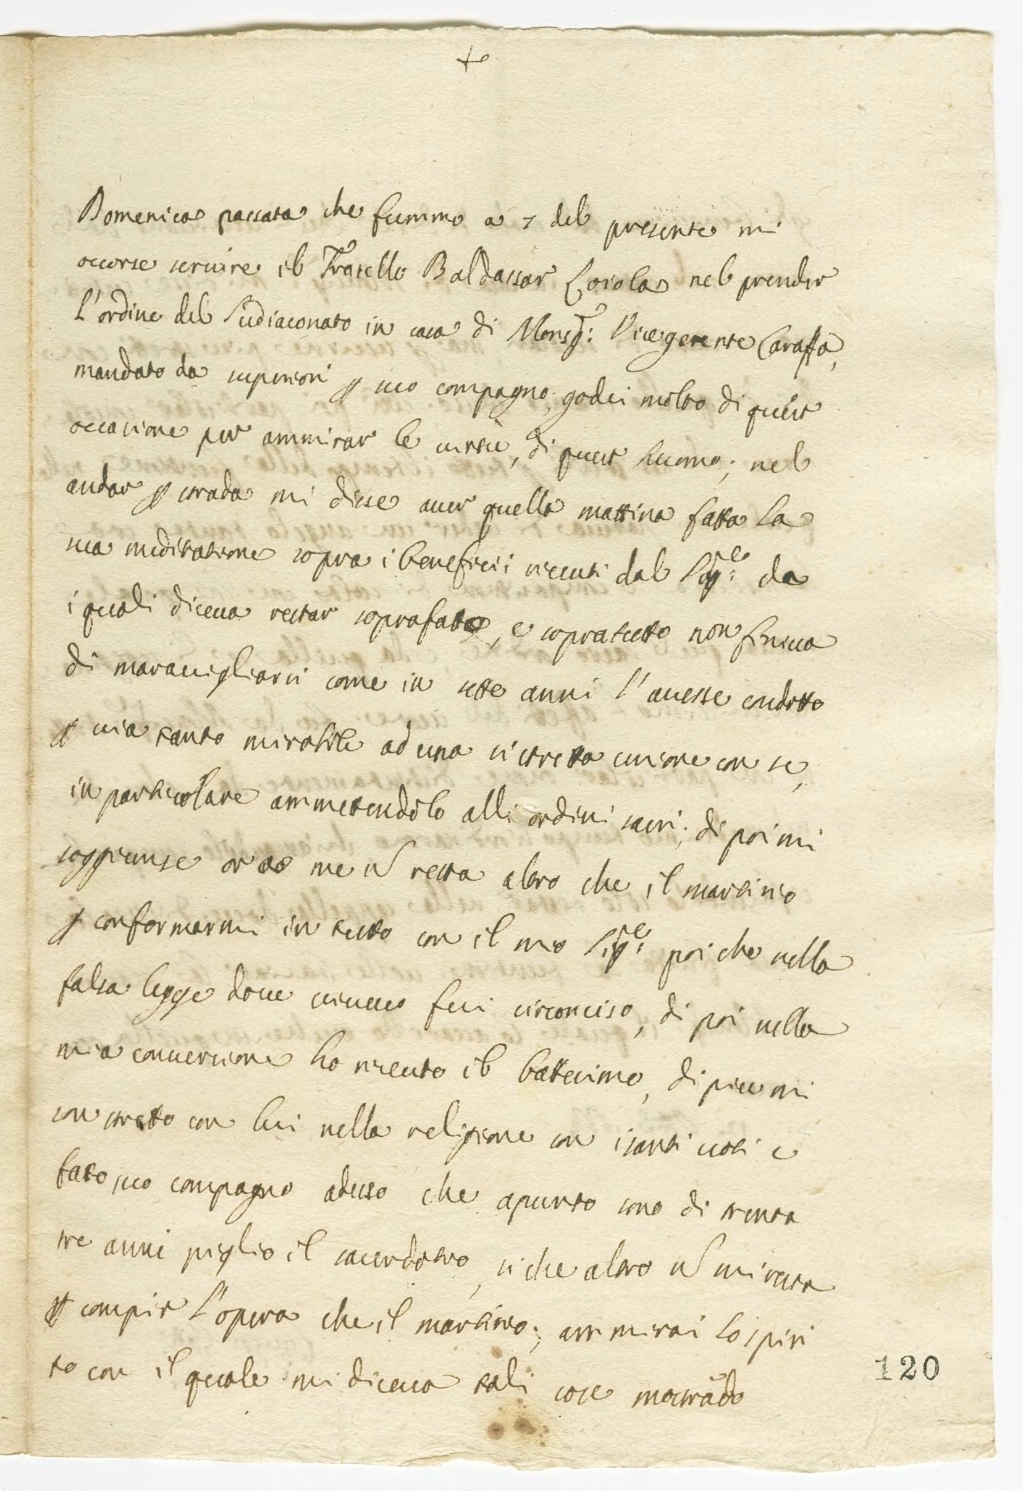 Domenica passata che fummo a 7 del presente mi
occorse servire il Fratello Baldassar Loiola nel prender
l'ordine del Sudiaconato in casa di Monsr: Vicegerente Caraffa,
mandato da superiori p suo compagno, godei molto di quest
occasione per ammirar le virtù, di quest huomo; nel
andar p strada mi disse aver quella mattina fatta la
sua meditatione sopra i beneficii riceuti dal Sigre: da
i quali diceua restar soprafatto, e sopratutto non finiua
di marauigliarsi come in sette anni l'auesse condotto
p uia tanto mirabile ad una si stretta unione con se,
in particolare ammettendolo alli ordini sacri; di poi mi
soggiunse or a me ñ resta altro che il martirio
p conformarmi in tutto con il mio Sigre: poi che nella
falsa legge doue uiueuo fui circonciso, di poi nella
mia conuersione ho riceuto il battesimo, di piu mi
son stretto con lui nella religione con i santi uoti e
fatto suo compagno adesso che apunto sono di trenta
tre anni piglio il sacerdotio, si che altro ñ mi resta
p compir l'opera che il martirio; ammirai lo spiri
to con il quale mi diceua tali cose mostrãdo
120